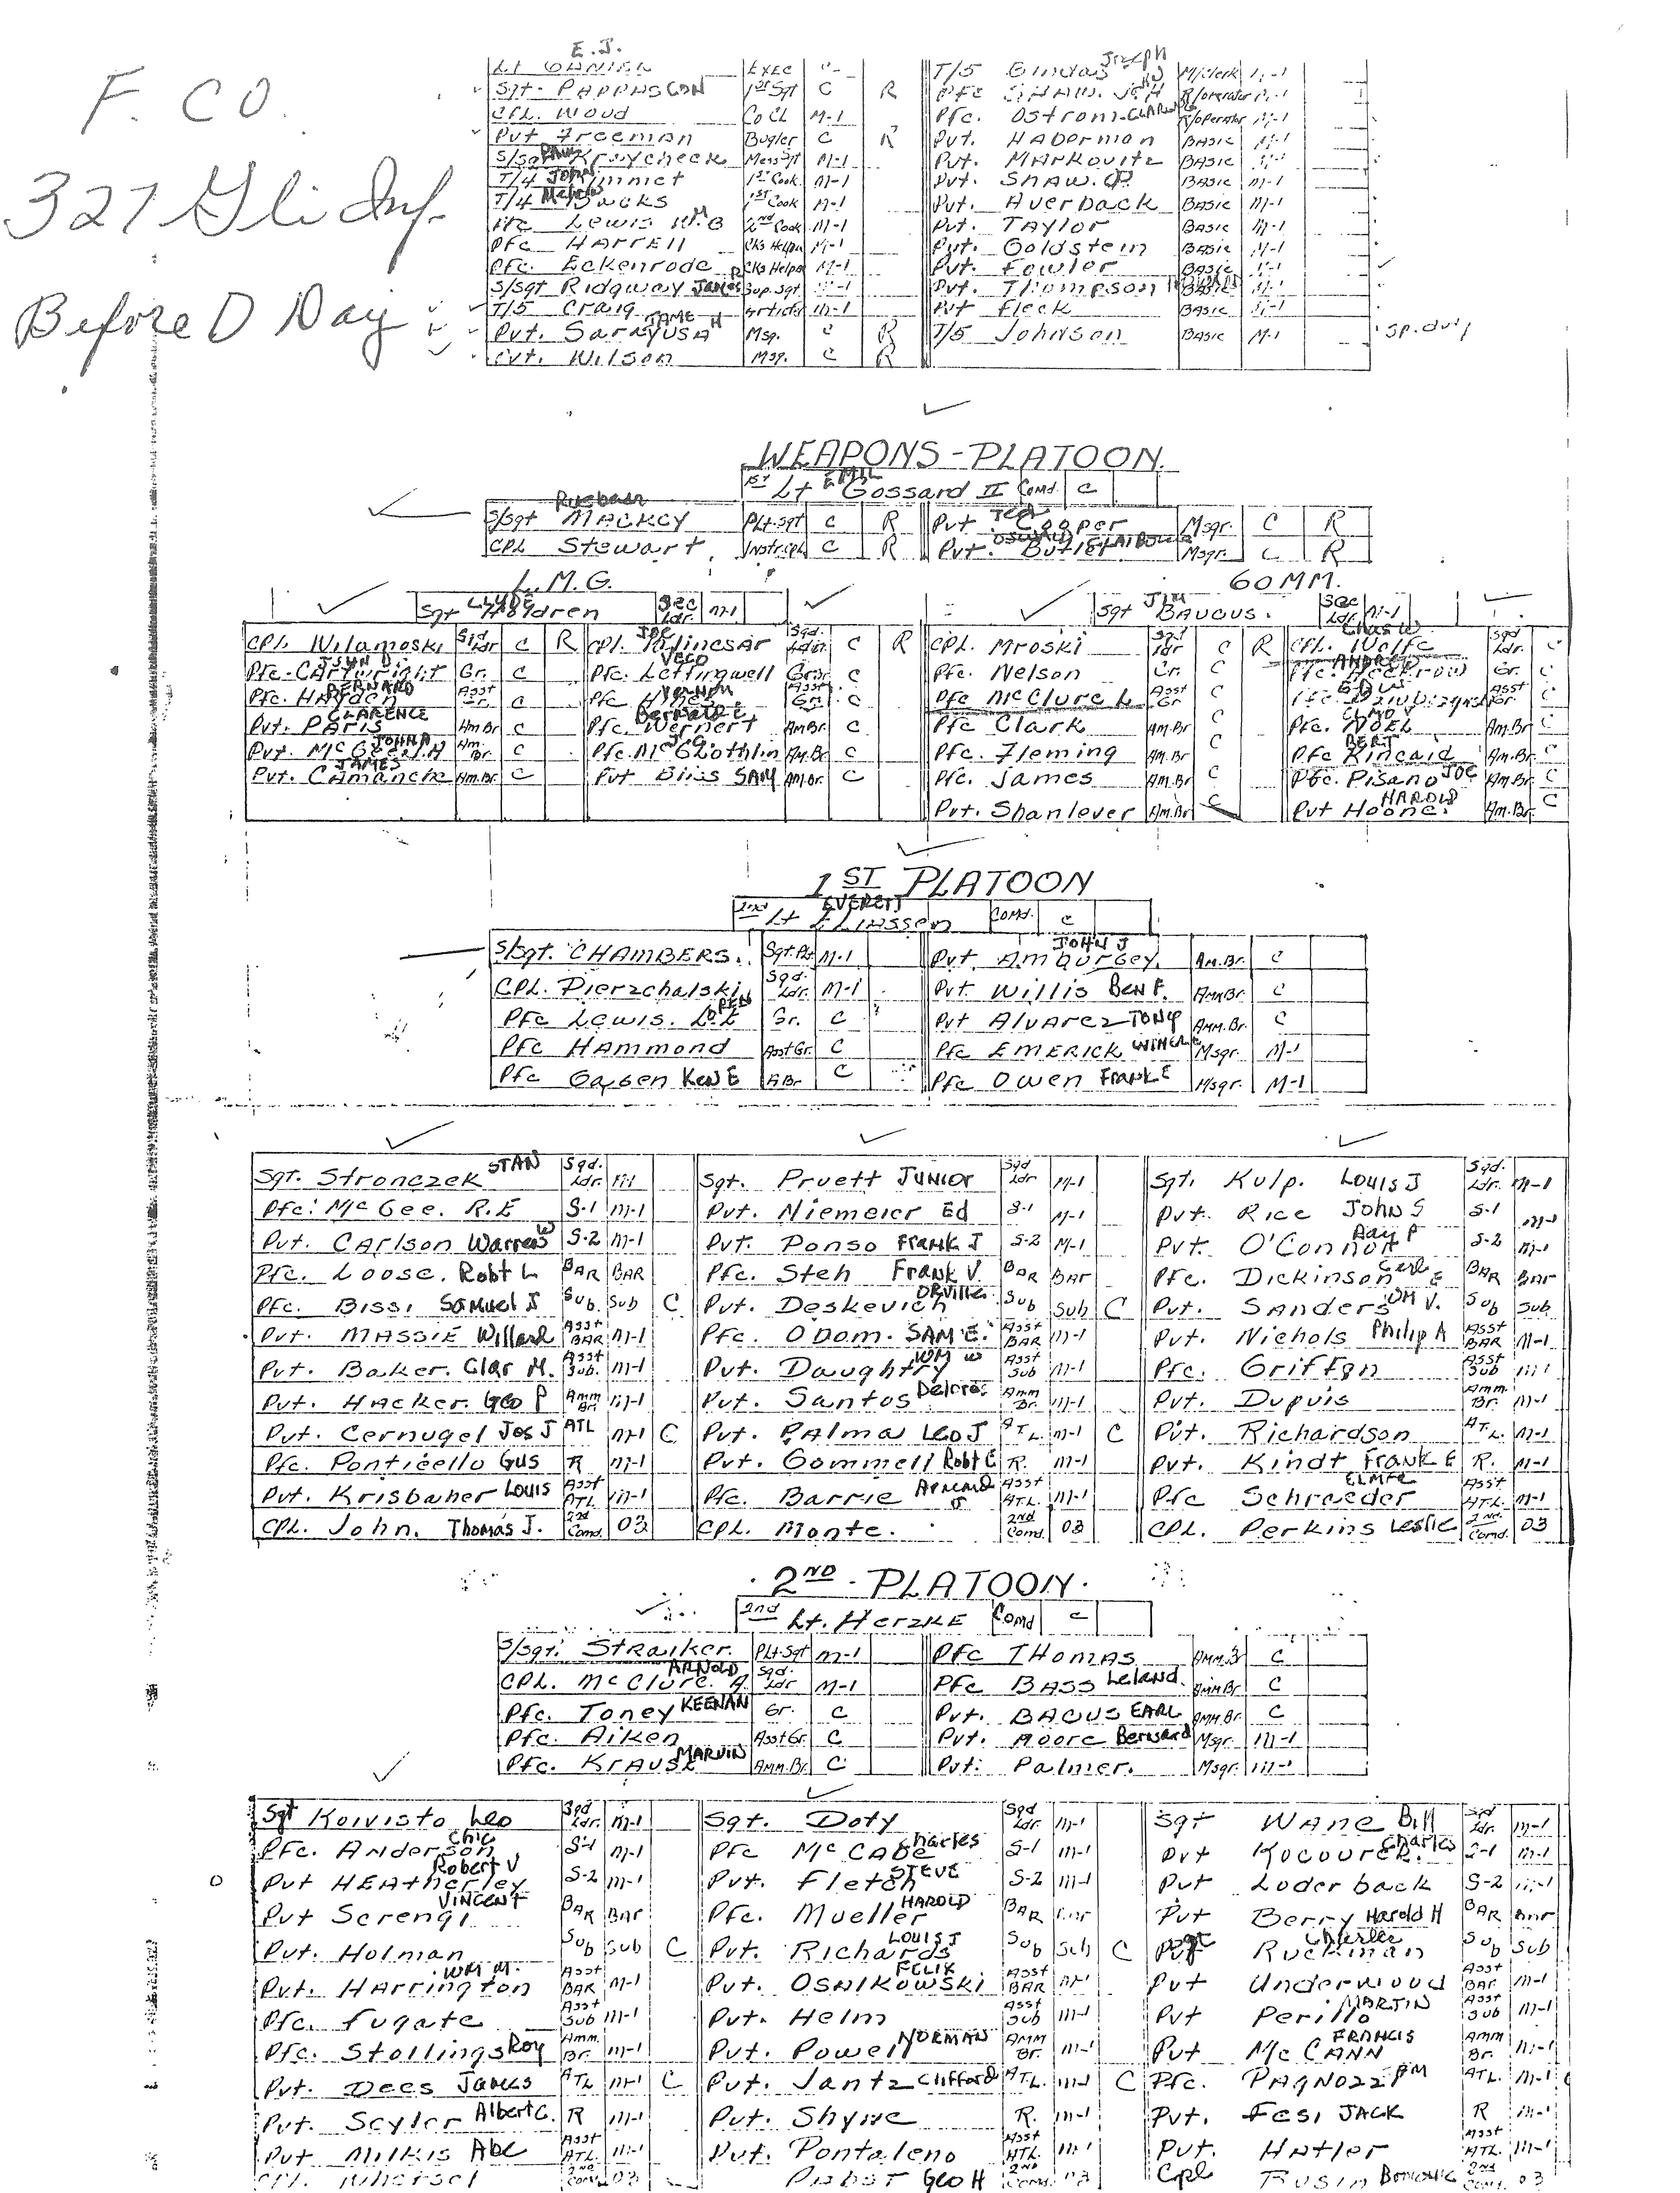 F. CO.
327 Gli Inf.
Before D Day
E.J.
Lt Exec C
Sgt. PAPPAS CON 1st Sgt C R
CPL. Wood Co CL M-1
Pvt Freeman Bugler C R
S/Sgt Kraycheck Mess Sgt M-1
T/4 JOHN 1st Cook M-1
T/4 1st Cook M-1
Pfc Lewis Wm B 2nd Cook M-1
Pfc HARRELL Cks Helper M-1
Pfc. Eckenrode Cks Helper M-1
S/Sgt Ridgway James Sup. Sgt M-1
T/5 Craig Artificer M-1
Pvt. SARNYUSA JAME H Msg. C R
Pvt. Wilson Msg. C R
T/5 Joseph M/clerk M-1
Pfc SHAW. R/operator M-1
Pfc. Ostrom R/operator M-1
Pvt. HABERMAN BASIC M-1
Pvt. MARKOVITZ BASIC M-1
Pvt. SHAW. BASIC M-1
Pvt. Averback BASIC M-1
Pvt. TAYLOR BASIC M-1
Pvt. Goldstein BASIC M-1
Pvt. Fowler BASIC M-1
Pvt. Thompson BASIC
Pvt Fleck BASIC M-1
T/5 Johnson BASIC M-1 Sp. duty
WEAPONS-PLATOON.
1st Lt EMIL Gossard II Comd. C
S/Sgt MACKEY Plt-Sgt C R
CPL Stewart. Instr. Cpl C R
Pvt. TED Cooper Msgr. C R
Pvt. Butler Msgr. C R
L.M.G.
60MM.
Sgt CLYDE Holdren Sec Ldr. M-1
Sgt JIM BAUCUS. Sec Ldr. M-1
CPL. Wilamoski Sqd Ldr C R
Pfc. CArtwright JOHN D. Gr. C
Pfc. HAYDEN BERNARD Asst Gr. C
Pvt. PARIS CLARENCE Am Br C
Pvt. McGee JOHN A Am. Br. C
Pvt. CAMANCK JAMES Am. Br. C
CPL. JOE Sqd. Ldr. C R
Pfc. Leffingwell VECO Gr. C
Pfc VERNON Asst Gr. C
Pfc. Wernert Am. Br C
Pfc. McGlothlin Am. Br C
Pvt Bliss SAM Am. Br. C
CPL. Mroski Sqd Ldr C R
Pfc. Nelson Gr. C
Pfc McClure L Asst Gr C
Pfc Clark Am. Br C
Pfc. Fleming Am. Br C
Pfc. James Am. Br C
Pvt. Shanlever Am. Br C
CPL. Wolfe Chas W Sqd. Ldr. C
Pfc. ANDREW Gr. C
Pfc. EDW Asst Gr C
Pfc. NOEL Am. Br. C
Pfc Kincaid BERT Am. Br. C
Pfc. Pisano JOE Am. Br. C
Pvt Hoone. HAROLD Am. Br. C
1ST PLATOON
2nd Lt EVERETT ELIASSEN COMD. C
S/Sgt. CHAMBERS. Sgt. Plt M-1
CPL. Pierzchalski Sqd. Ldr. M-1
Pfc Lewis. L.E Gr. C
Pfc HAMMOND Asst Gr. C
Pfc Gasgen Ken E A Br C
Pvt. Amburgey JOHN J Am. Br. C
Pvt. Willis Ben F. Amm Br. C
Pvt Alvarez TONY Amm. Br. C
Pfc EMERICK Msgr. M-1
Pfc Owen FRANK E Msgr. M-1
Sgt. Stronczek STAN Sqd. Ldr. M-1
Pfc. McGee. R.E S-1 M-1
Pvt. CArlson Warren W S-2 M-1
Pfc. Loose. Robt L BAR BAR
Pfc. BISSI Samuel J Sub. Sub C
Pvt. MASSIE Willard Asst BAR M-1
Pvt. Baker. Clar M. Asst Sub. M-1
Pvt. HAcker. Geo P Amm Br. M-1
Pvt. Cernugel Jos J ATL M-1 C
Pfc. Ponticello Gus R M-1
Pvt. Krisbaher LOUIS Asst ATL M-1
CPL. John. Thomas J. 2nd Comd. 03
Sgt. Pruett JUNIOR Sqd Ldr M-1
Pvt. Niemeier Ed S-1 M-1
Pvt. Ponso FRANK J S-2 M-1
Pfc. Steh FRANK V. BAR BAR
Pvt. Deskevich ORVILLE Sub Sub C
Pfc. ODOM. SAM E. Asst BAR M-1
Pvt. Daughtry WM W Asst Sub M-1
Pvt. Santos Amm Br. M-1
Pvt. PALMA Leo J ATL. M-1 C
Pvt. Gommell Robt C R. M-1
Pfc. Barrie Armand J Asst ATL. M-1
CPL. Monte. 2nd Comd. 03
Sgt. Kulp. LOUIS J Sqd. Ldr. M-1
Pvt. RICE JOHN S S-1 M-1
Pvt. O'Connor Ray P S-2 M-1
Pfc. Dickinson Carl E BAR BAR
Pvt. Sanders WM V. Sub Sub.
Pvt. Nichols Philip A Asst BAR M-1
Pfc. Griffen Asst Sub M-1
Pvt. Dupuis Amm. Br. M-1
Pvt. Richardson ATL. M-1
Pvt. Kindt FRANK E R. M-1
Pfc Schroeder ELMER Asst ATL. M-1
CPL. Perkins Leslie 2nd Comd. 03
2ND. PLATOON.
2nd Lt. HerzKE Comd C
S/Sgt. Straiker. Plt-Sgt M-1
CPL. McClure. A. ARNOLD Sqd. Ldr M-1
Pfc. Toney KEENAN Gr. C
Pfc. Aiken Asst Gr. C
Pfc. KRAUSE MARVIN Amm. Br. C
Pfc THOMAS Amm. B C
Pfc BASS Leland. Amm Br. C
Pvt. BACUS EARL Amm. Br. C
Pvt. Moore Bernard Msgr. M-1
Pvt. Palmer. Msgr. M-1
Sgt Koivisto Leo Sqd Ldr. M-1
Pfc. Anderson Chic S-1 M-1
Pvt HEAtherley Robert V S-2 M-1
Pvt Serengi VINCENT BAR BAR
Pvt. Holman Sub Sub C
Pvt. HArrington WM M. Asst BAR M-1
Pfc. Fugate Asst Sub M-1
Pfc. Stollings Roy Amm. Br. M-1
Pvt. Dees James ATL M-1 C
Pvt. Seyler Albert C. R M-1
Pvt MILKIS Abe Asst ATL. M-1
CPL. 2nd Comd. 03
Sgt. Doty Sqd Ldr. M-1
Pfc McCABE Charles S-1 M-1
Pvt. Fletch STEVE S-2 M-1
Pfc. Mueller HAROLD BAR BAR
Pvt. Richards LOUIS J Sub Sub C
Pvt. OSNIKOWSKI FELIX Asst BAR M-1
Pvt. Helm Asst Sub M-1
Pvt. Powell NORMAN AMM Br. M-1
Pvt. Jantz Clifford ATL. M-1 C
Pvt. Shyne R. M-1
Pvt. Pontaleno Asst ATL. M-1
Pabst Geo H 2nd Comd. 03
Sgt WANE Bill Sqd Ldr. M-1
Pvt Kocourek. Charles S-1 M-1
Pvt Loderback S-2 M-1
Pvt Berry Harold H BAR BAR
Ruckman Charles Sub Sub
Pvt Underwood Asst BAR M-1
Pvt Perillo MARTIN Asst Sub M-1
Pvt McCANN FRANCIS Amm Br. M-1
Pfc. PAGNOZZI PM ATL. M-1
Pvt. Fesi JACK R M-1
Pvt. Hatler Asst ATL. M-1
Cpl Rusin 2nd Comd. 03